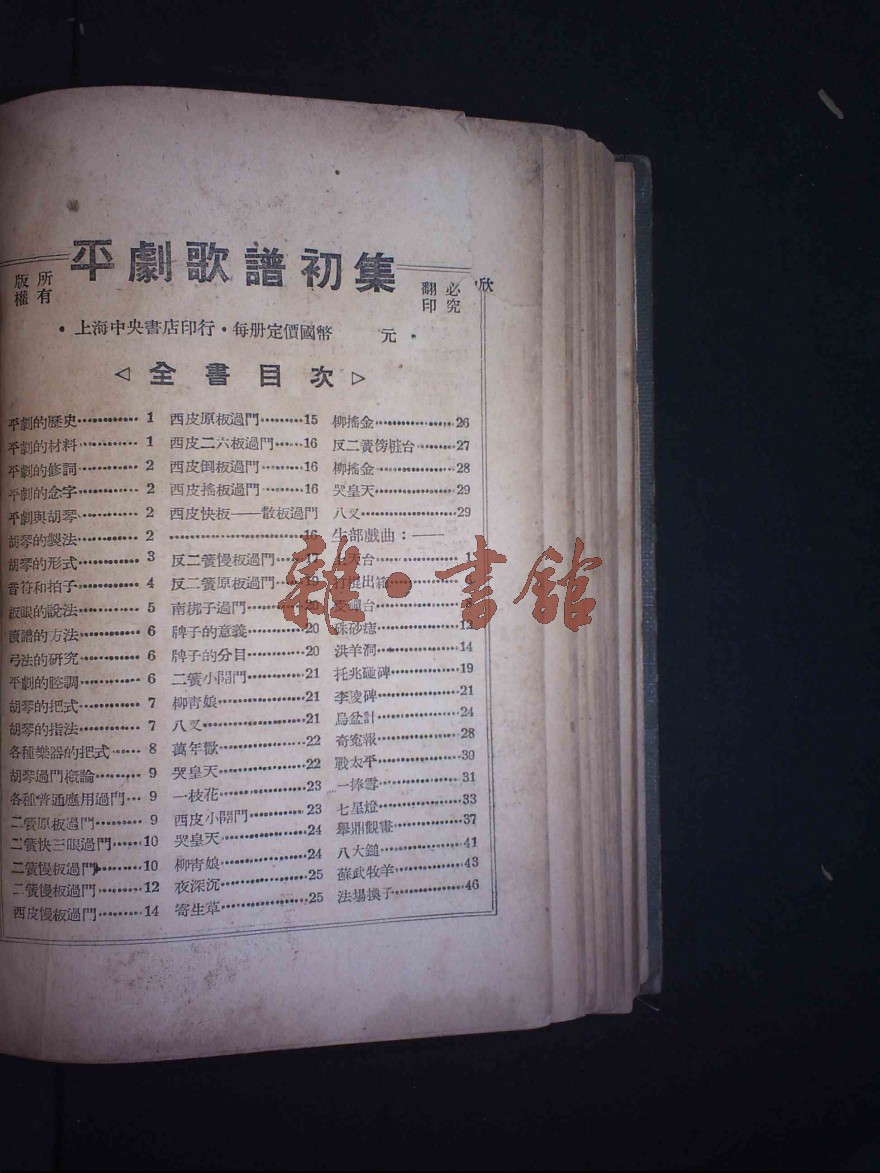 平劇歌譜初集
版權所有
翻印必究
欣
•上海中央書店印行•每册定價國幣 元•
◁全書目次▷
平劇的歷史 1
平劇的材料 1
平劇的修詞 2
平劇的念字 2
平劇與胡琴 2
胡琴的製法 2
胡琴的形式 3
音符和拍子 4
板眼的說法 5
讀譜的方法 6
弓法的研究 6
平劇的腔調 6
胡琴的把式 7
胡琴的指法 7
各種樂器的把式 8
胡琴過門概論 9
各種普通應用過門 9
二簧原板過門 9
二簧快三眼過門 10
二簧慢板過門 10
二簧慢板過門 12
西皮慢板過門 14
西皮原板過門 15
西皮二六板過門 16
西皮倒板過門 16
西皮搖板過門 16
西皮快板——散板過門
16
反二簧慢板過門 17
反二簧原板過門 19
南梆子過門 20
牌子的意義 20
牌子的分目 20
二簧小開門 21
柳青娘 21
八叉 21
萬年歡 22
哭皇天 22
一枝花 23
西皮小開門 23
哭皇天 24
柳青娘 24
夜深沉 25
寄生草 25
柳搖金 26
反二簧傍粧台 27
柳搖金 28
哭皇天 29
八叉 29
生部戲曲：——
天台 1
打棍出箱
台
硃砂痣 12
洪羊洞 14
托兆碰碑 19
李陵碑 21
烏盆計 24
奇寃報 28
戰太平 30
一捧雪 31
七星燈 33
舉鼎觀畫 37
八大鎚 41
蘇武牧羊 43
法場換子 46
雜•書館